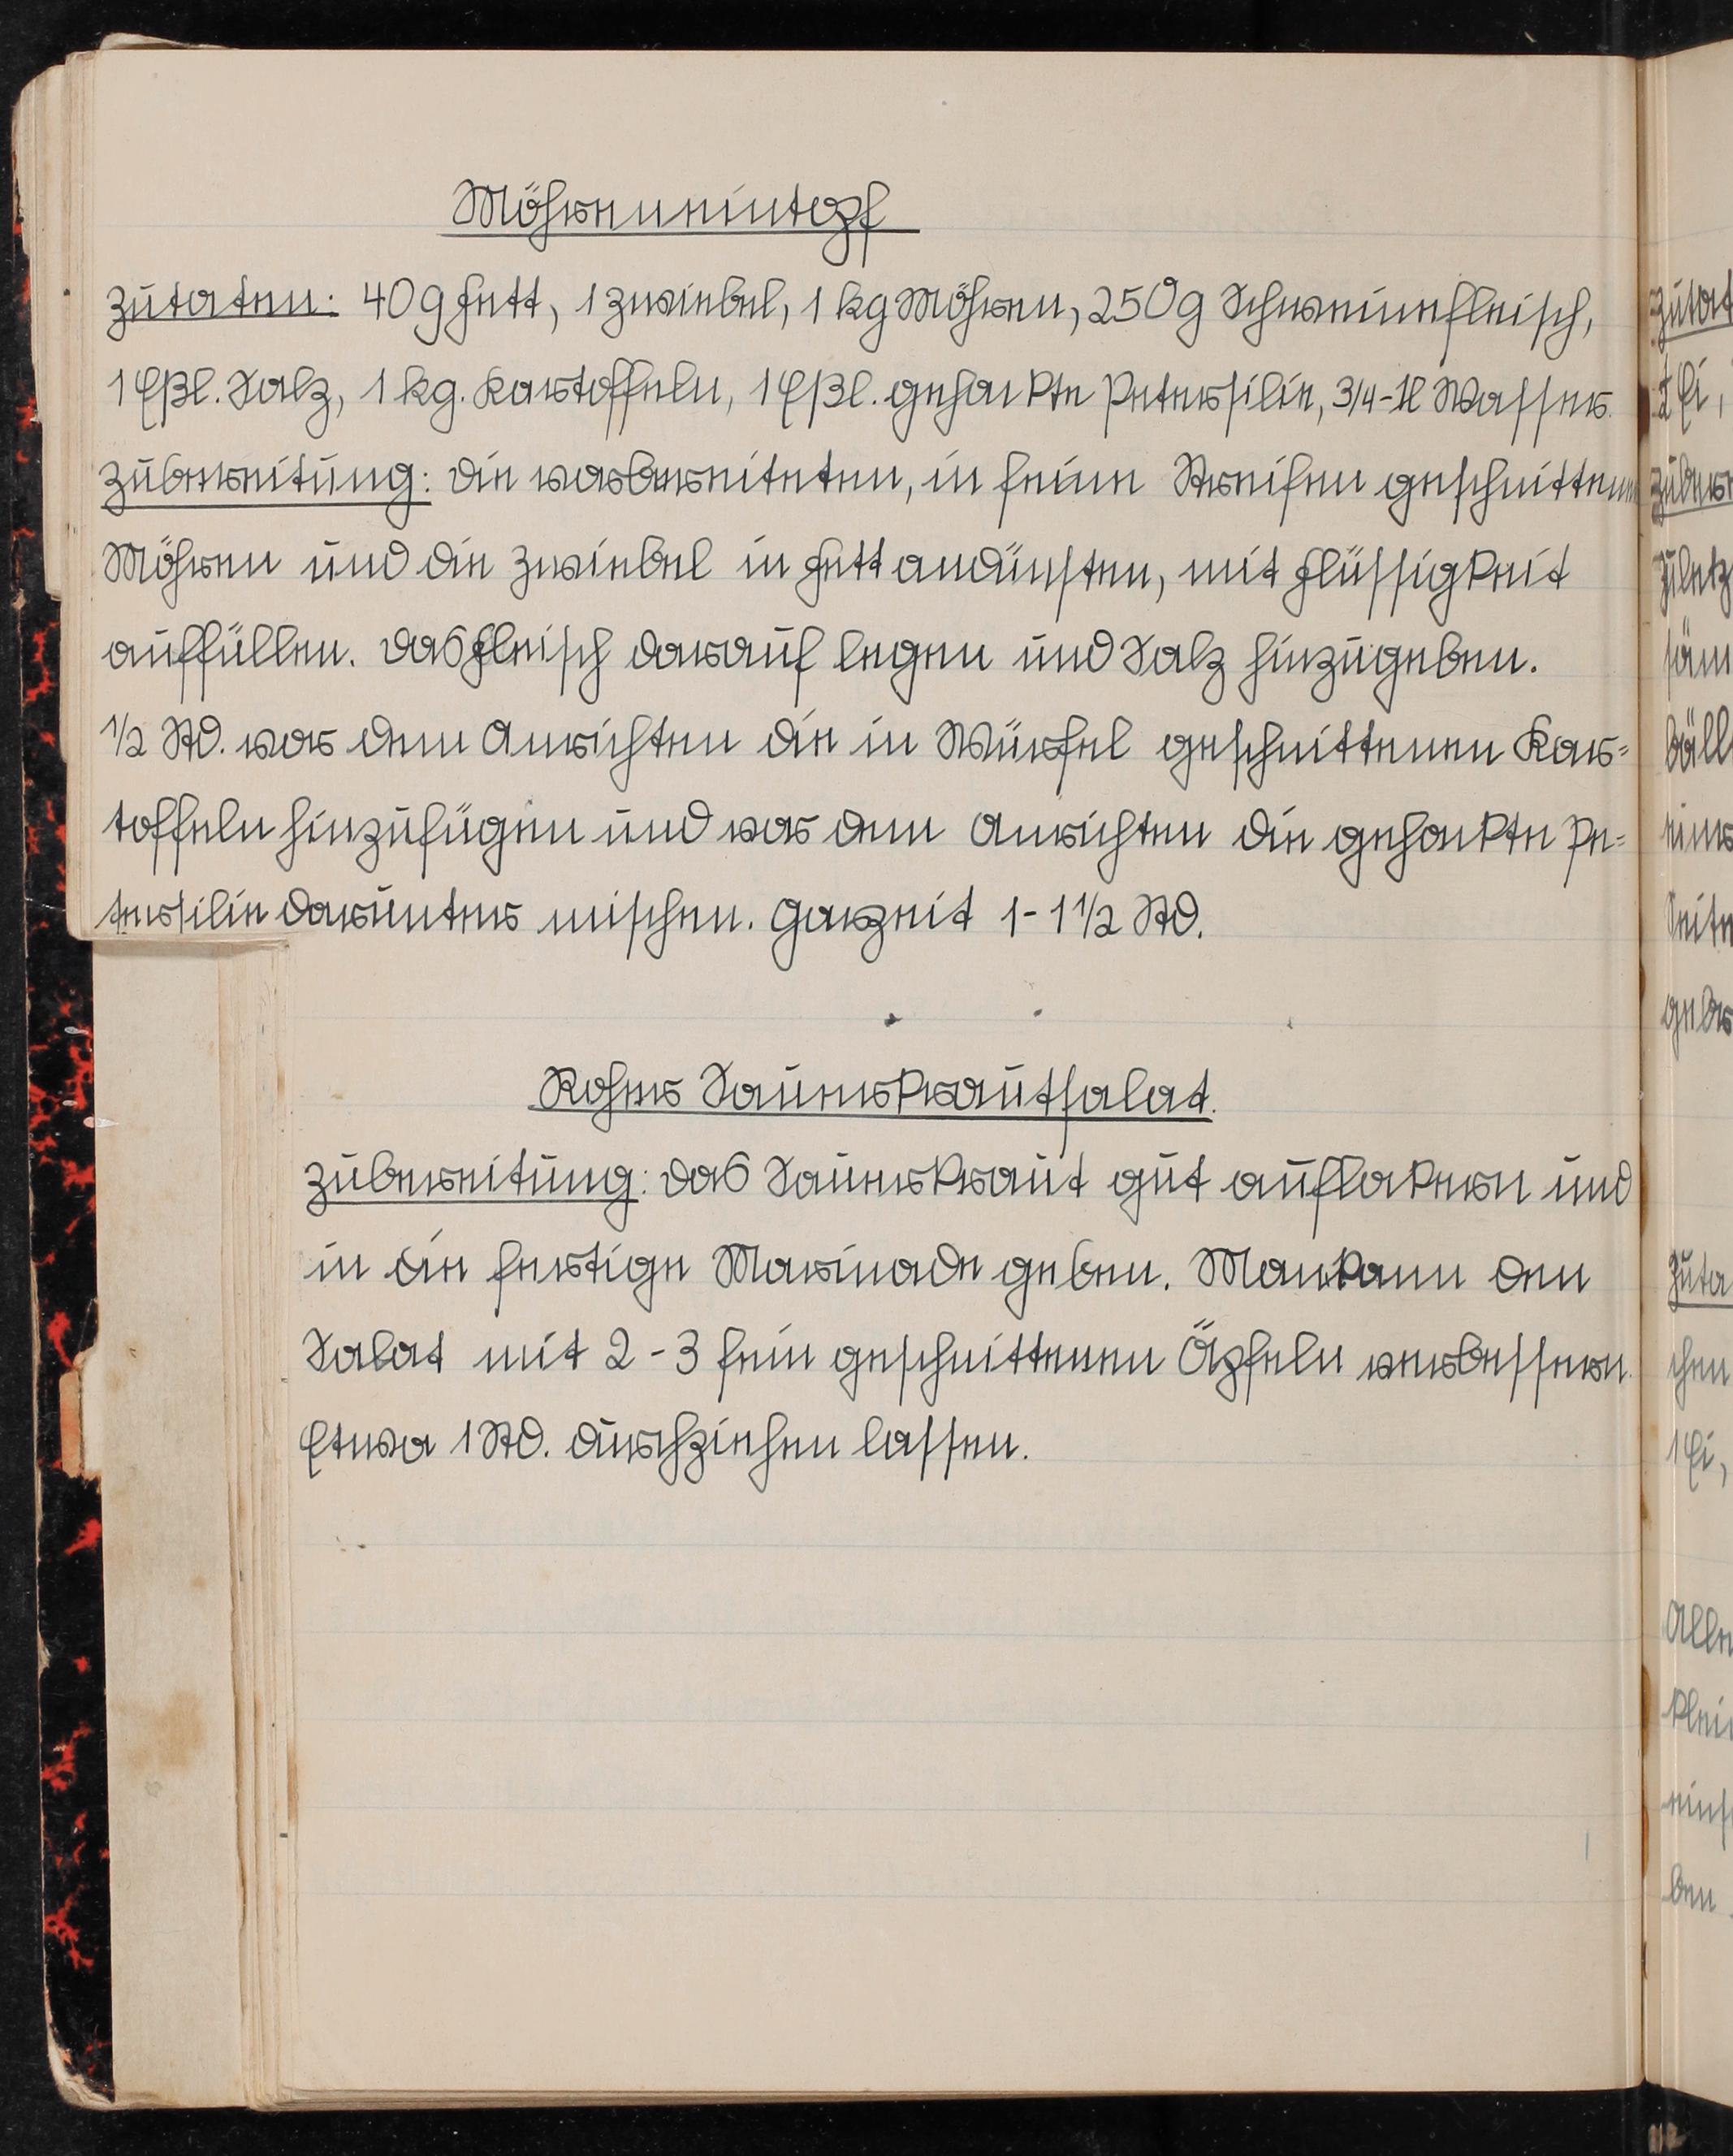 Möhreneintopf
Zutaten: 40 g Fett, 1 Zwiebel, 1 kg Möhren, 250 g Schweinefleisch,
1 Eßl. Salz, 1 kg. Kartoffeln, 1 Eßl. gehackte Petersilie, 3/4-1l Wasser.
Zubereitung: Die vorbereiteten, in feine Streifen geschnittenen
Möhren und die Zwiebel in Fett andünsten, mit Flüssigkeit
auffüllen. Das Fleisch darauf legen und Salz hinzugeben.
1/2 Std. vor dem Anrichten die in Würfel geschnittenen Kar=
toffeln hinzufügen und vor dem Anrichten die gehackte Pe=
tersilie darunter mischen. Garzeit 1-1 1/2 Std.
Rohes Sauerkrautsalat.
Zubereitung: Das Sauerkraut gut auflokern und
in die fertige Marinade geben. Man kann den
Salat mit 2-3 fein geschnittenen Äpfeln verbessern.
Etwa 1 Std. durchziehen lassen.
Zutat
Ei,
Zuber
Zuletz
säm
bäll
eine
Seite
geb
Zuta
chen
1 Ei,
Alle
klei
eins
ben.